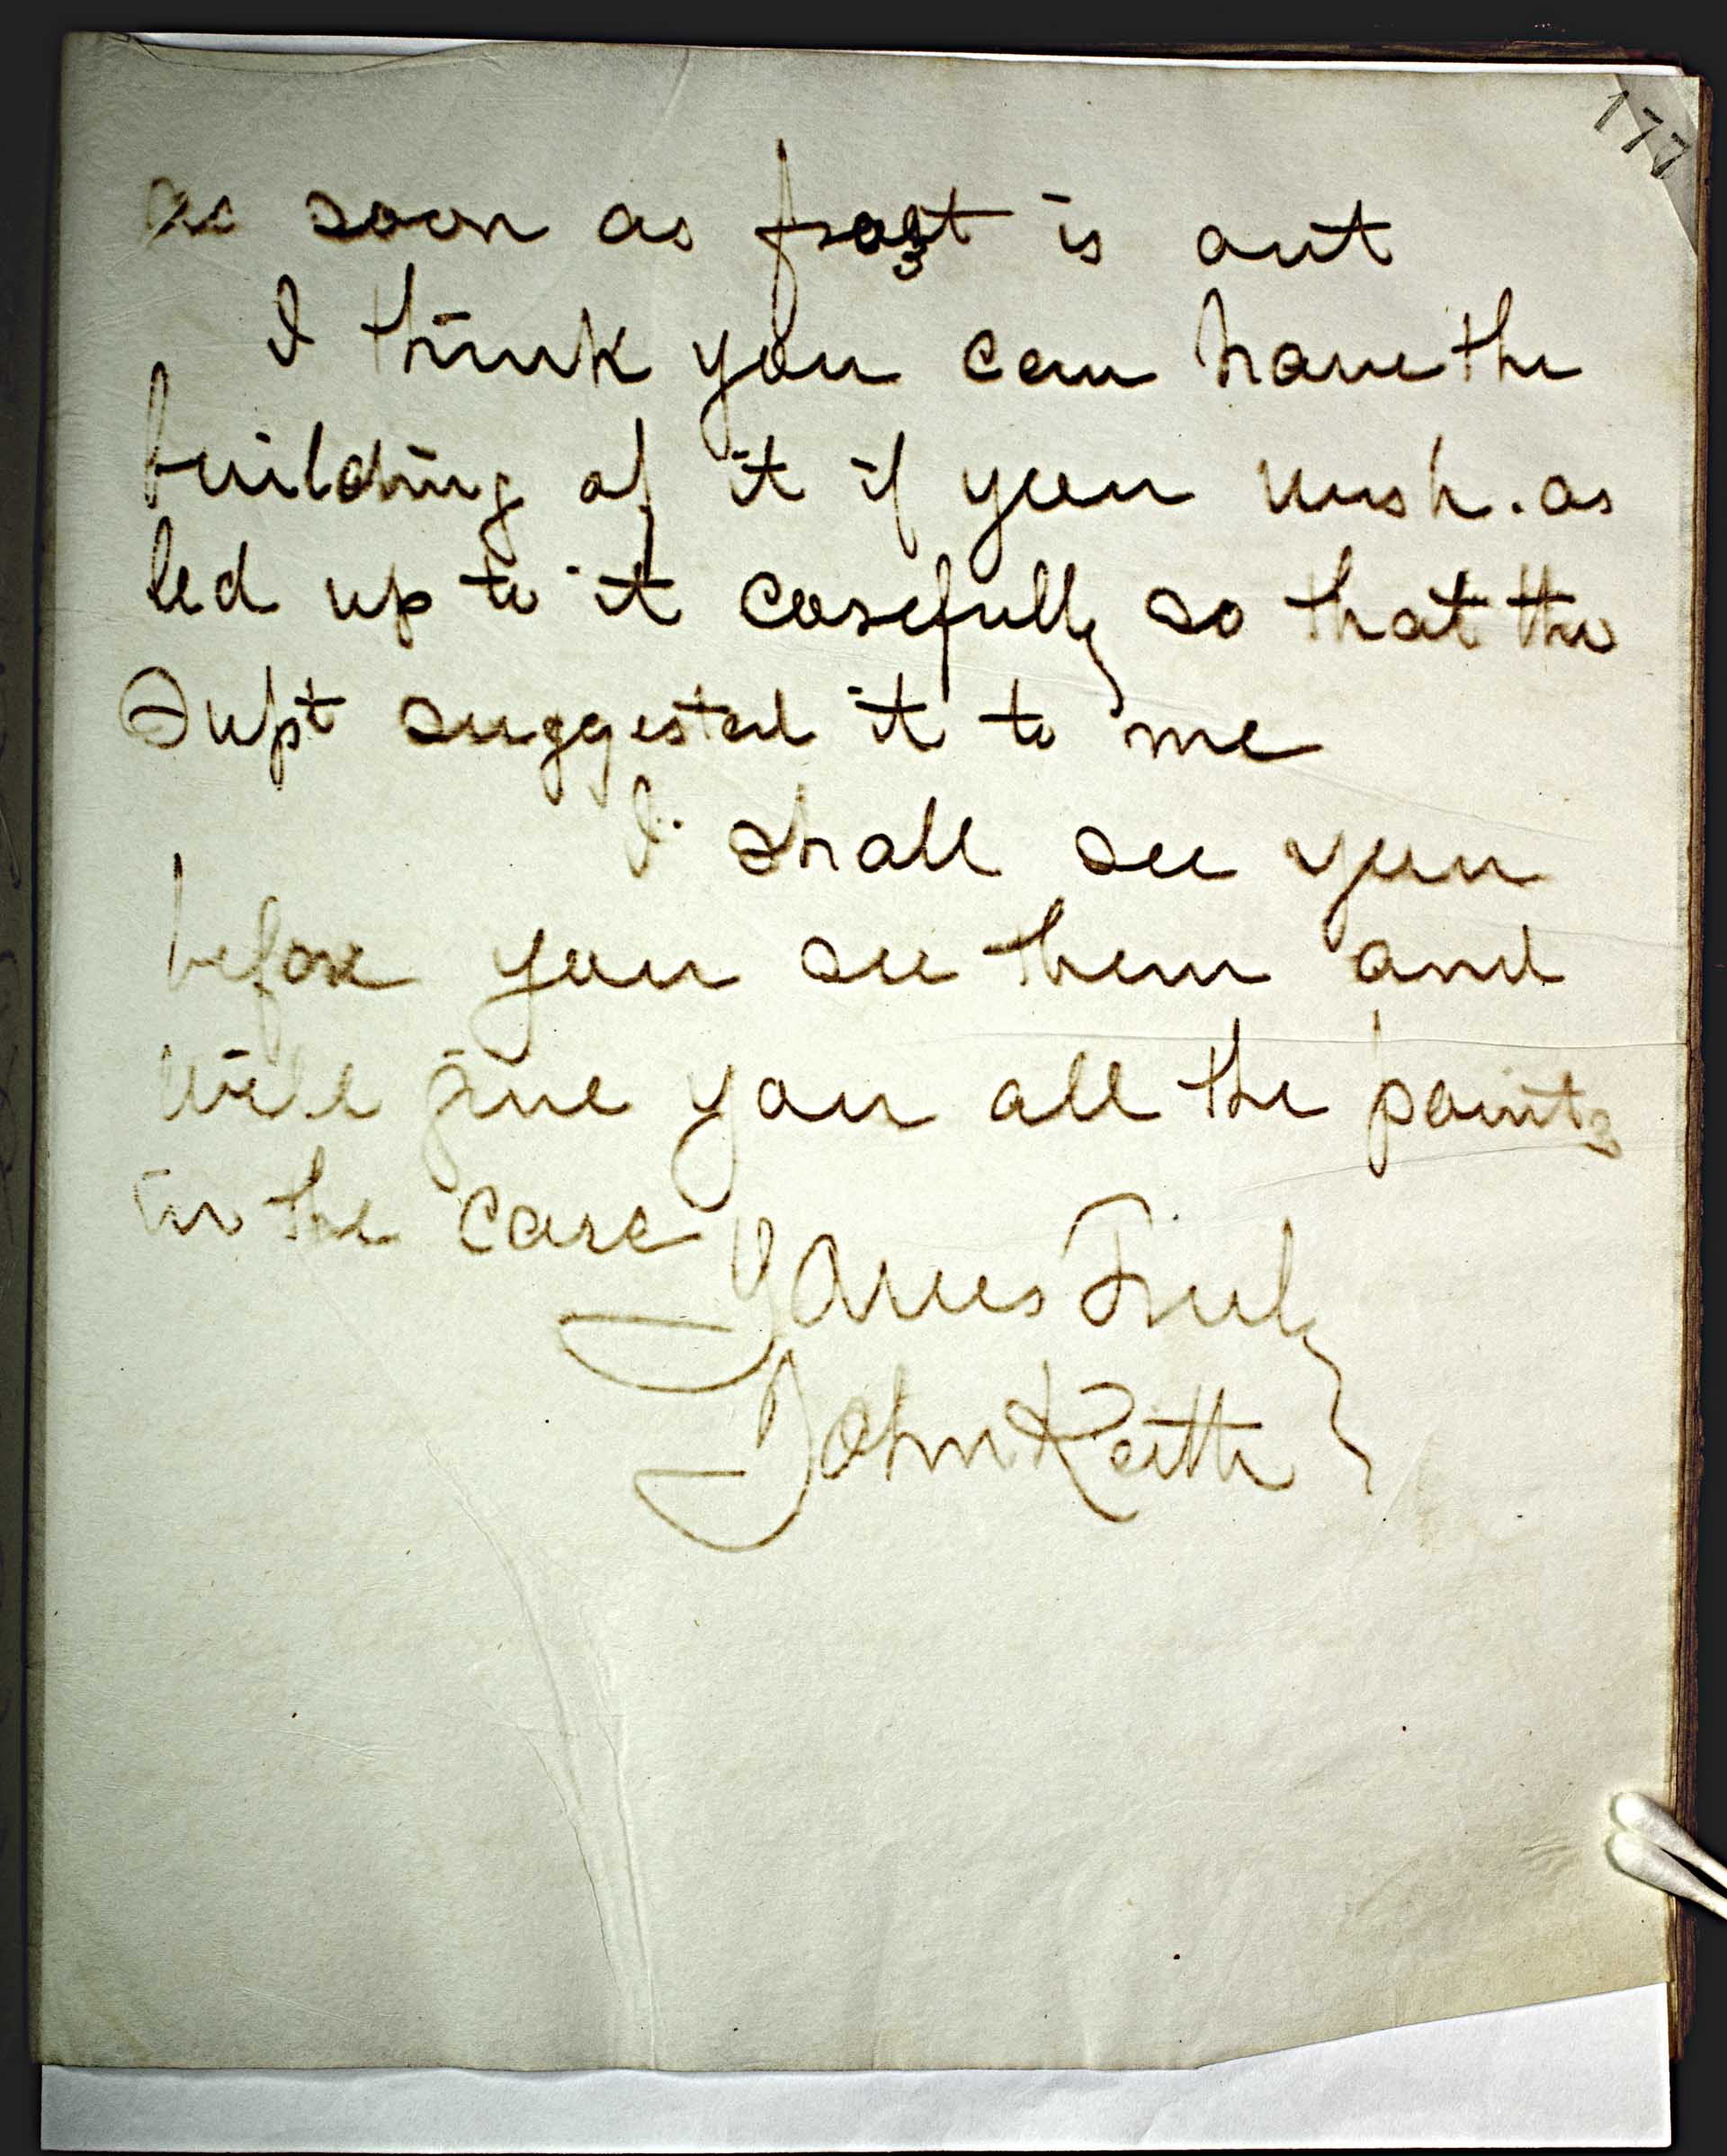 177
as soon as frost is out
I think you can have the
building of it if you wish. as
led up to it carefully so that the
Supt suggested it to me
I shall see you
before you see them and
will give you all the points
in the case
Yours Truly
John Keith